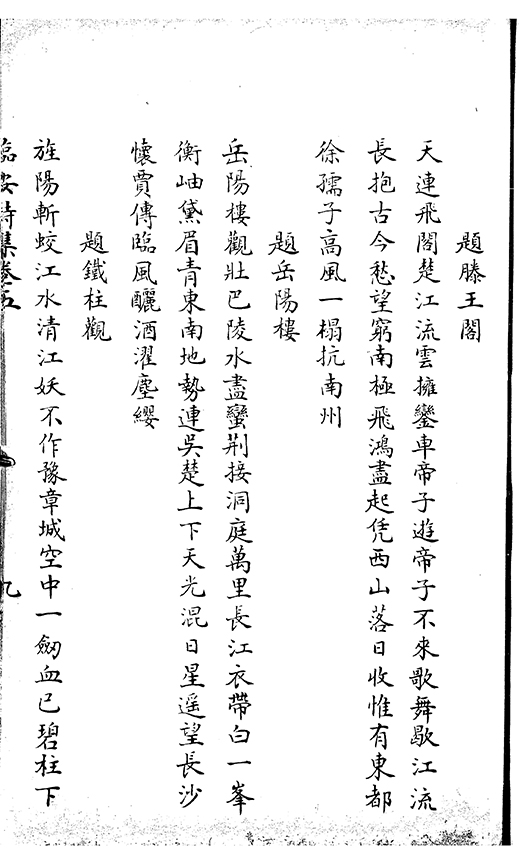 題滕王閣
天連飛閣楚江流雲擁鑾車帝子遊帝子不來歌舞歇江流
長抱古今愁望窮南極飛鴻盡起凭西山落日收惟有東都
徐孺子高風一榻抗南州
題岳陽樓
岳陽樓觀壯巴陵水盡蠻荆接洞庭萬里長江衣帶白一峯
衡岫黛眉青東南地勢連吳楚上下天光混日星遥望長沙
懷賈傅臨風釃酒濯塵纓
題鐵柱觀
旌陽斬蛟江水清江妖不作豫章城空中一劒血已碧柱下
臨安詩集卷五
九